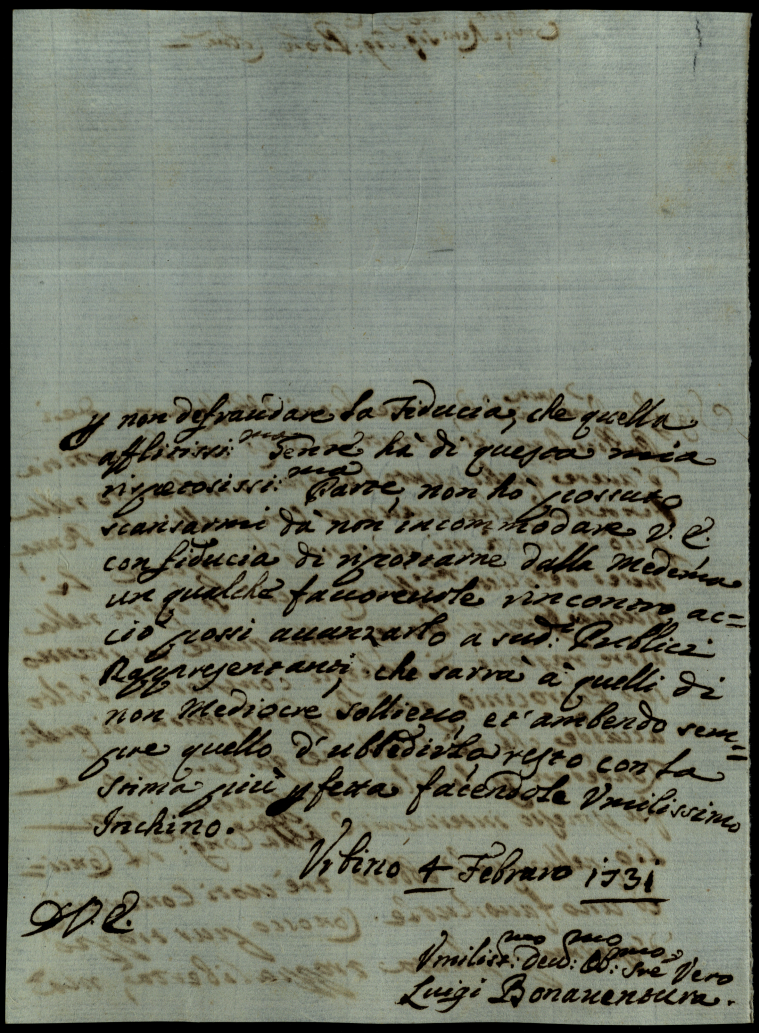 p non defraudare la Fiducia, che quella
afflitissi:ma Gente hà di questa mia
rispetosissi:ma Parte, non hò possuto
scansarmi dà non incommodare V. E.
con fiducia di riportarne dalla Medema
un qualche fauoreuole rincontro, ac=
ciò possi auanzarlo a sud:ti Publici
Rappresentanti, che sarrà à quelli di
non Mediocre sollieuo, et ambendo sem=
pre quello d' ubbidirla resto con la
stima più pfetta facendole Vmilissimo
Inchino.
Vrbino 4 Febraro 1731
D V. E.
Vmiliss:mo deu:mo Ob:mo Sre Vero
Luigi Bonauentura.